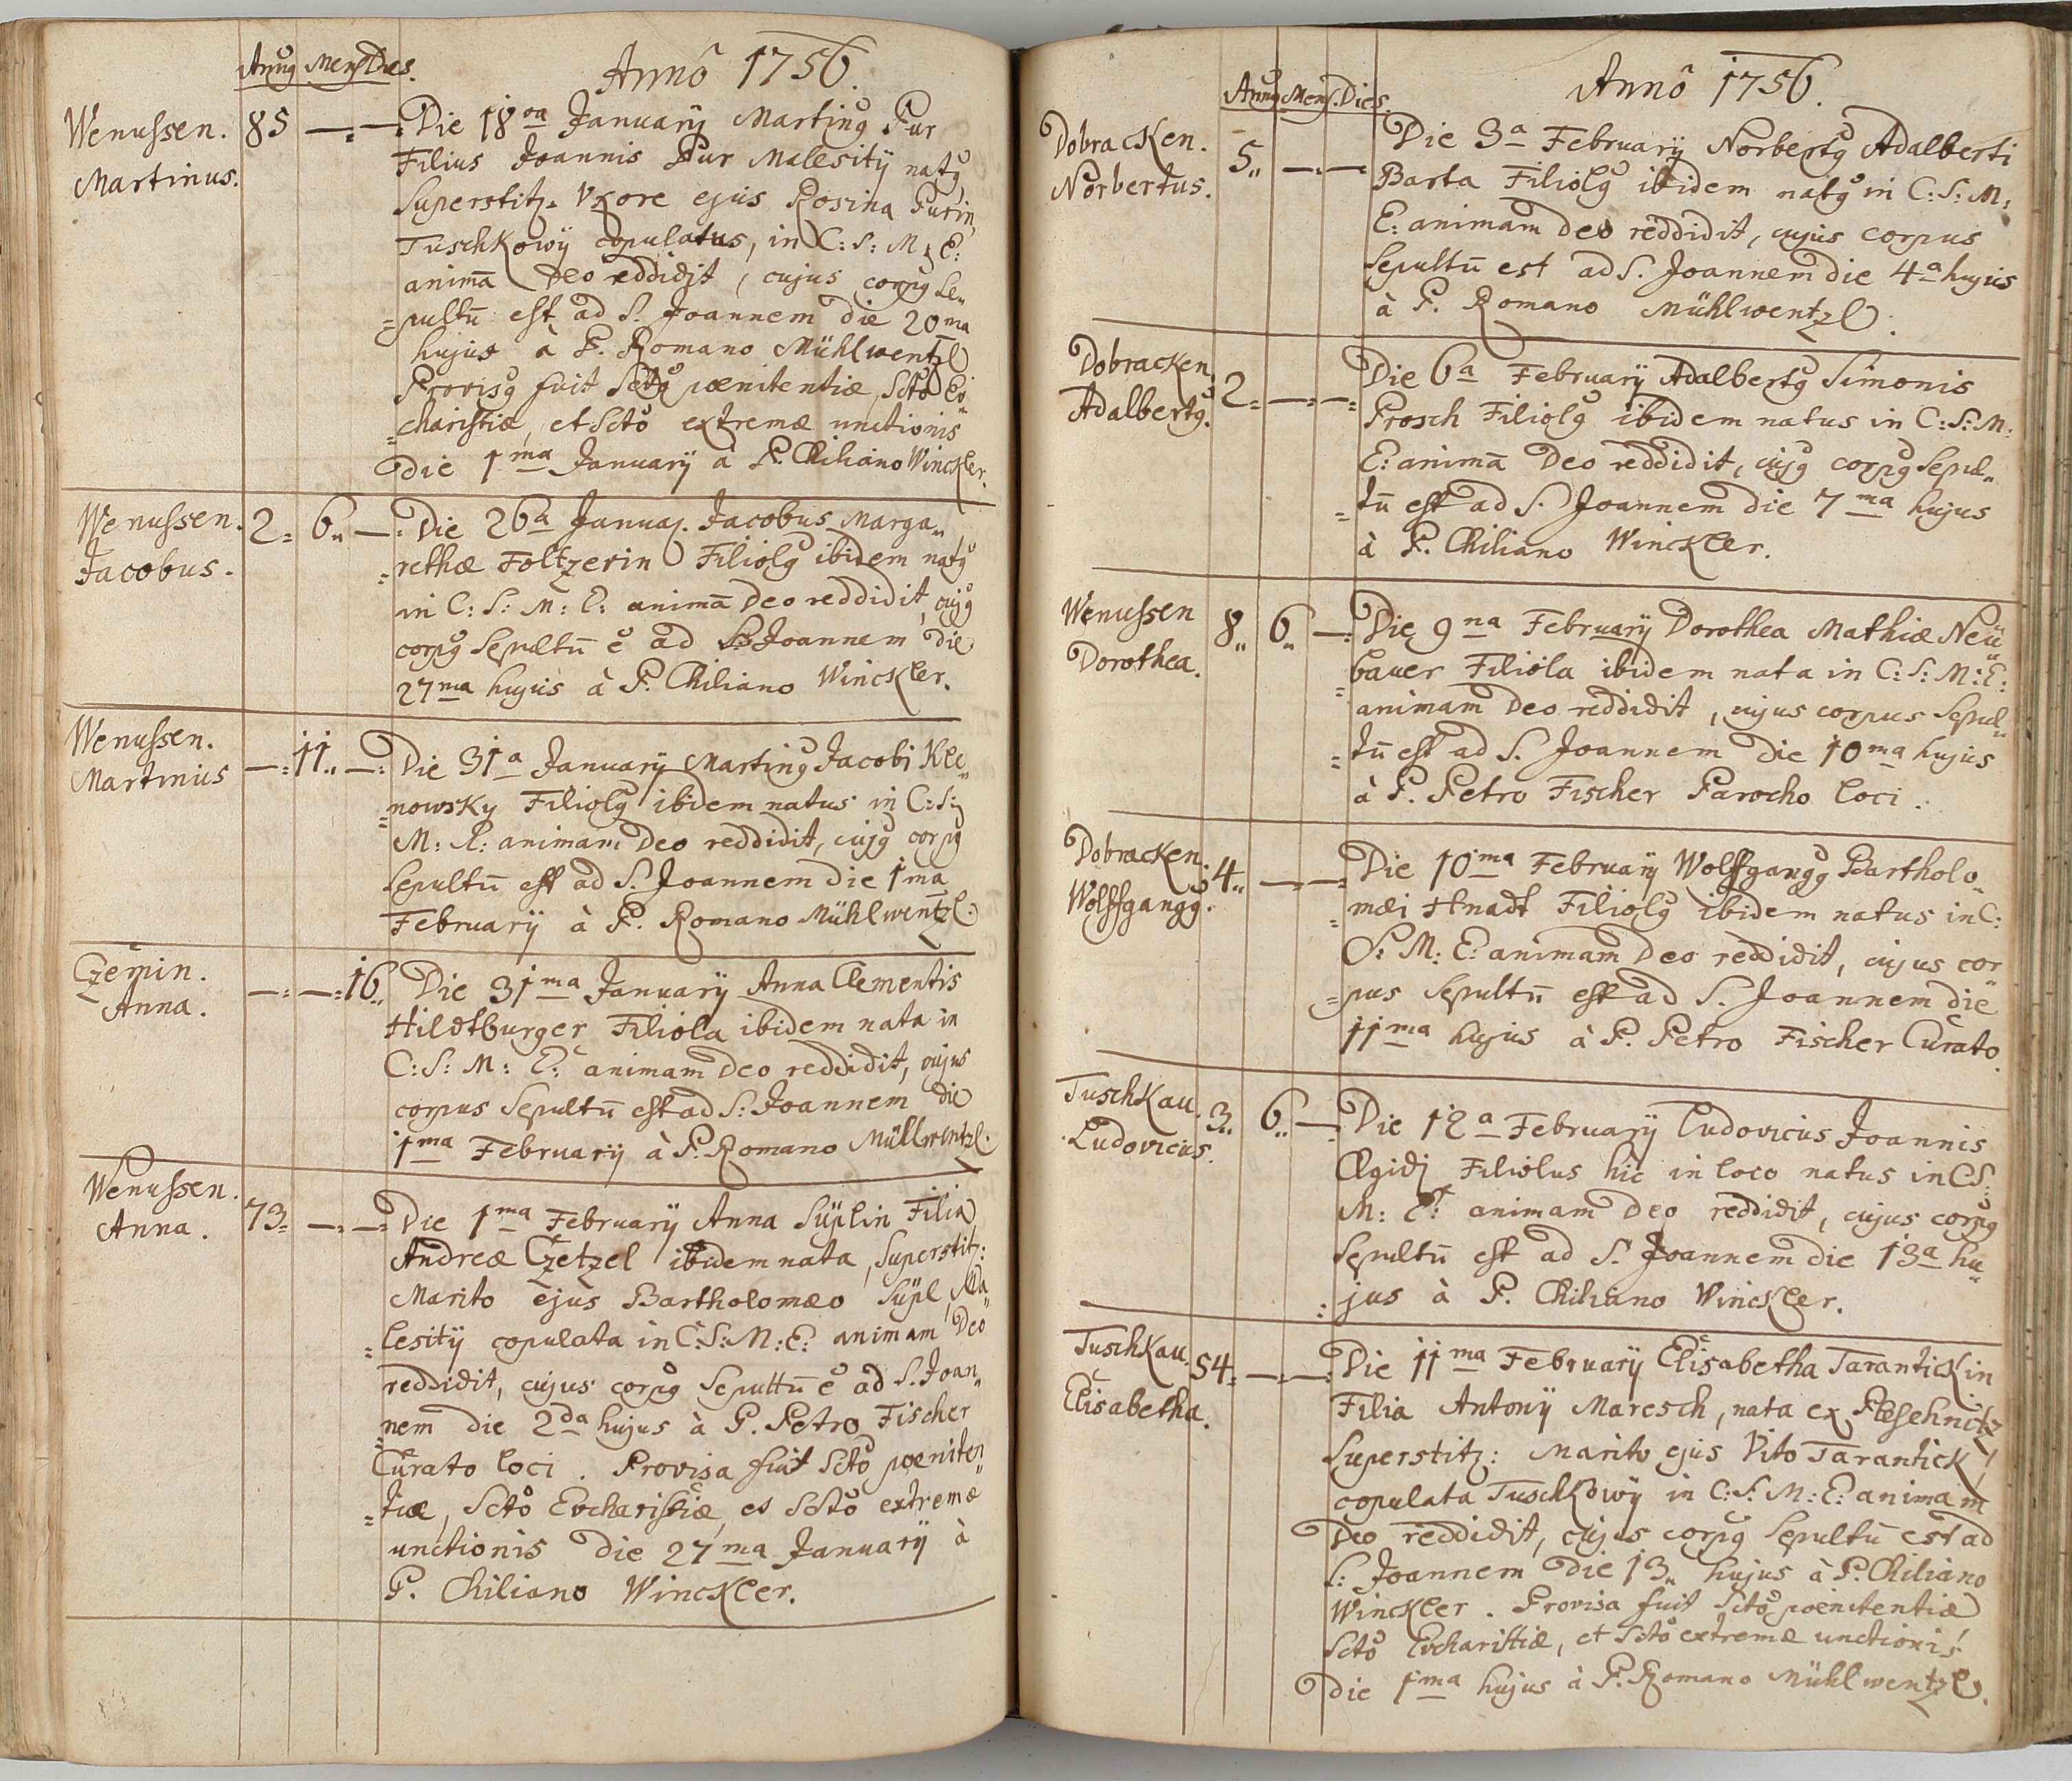 Annus Mens Dies.
Annô 1756.
Wenussen. 85 — —
Martinus.
Die 18va Januarÿ Martinus Pur
Filius Joannis Pur Malesitÿ natus
Superstitz. Vxore ejus Rosina Purin,
Tuschkowÿ copulatus, in C: S: M: E:
animā Deo reddidit, cujus corpus Se„
=pultū est ad S. Joannem die 20ma
hujus à P. Romano Mühlwentzl
Provisus fuit Scto poenitentiæ, Scto Ev„
=charistiæ, et Scto extremæ unctionis
die 1ma Januarÿ à P. Chiliano Winckler.
Wenussen. 2= 6„ —
Jacobus.
Die 26a Januar. Jacobus Marga„
=rethæ Foltzerin Filiolus ibidem natus
in C: S: M: E: animā Deo reddidit, cujus
corpus Sepultū ē ad S: Joannem die
27ma hujus à P. Chiliano Winckler.
Wenussen. — 11„ —
Martinus
Die 31a Januarÿ Martinus Jacobi Kle„
=nowsky Filiolus ibidem natus in C: S:
M: E: animam Deo reddidit, cujus corpus
Sepultū est ad S. Joannem die 1ma
Februarÿ à P. Romano Mühlwentzl.
Czemin. — — 16„
Anna.
Die 31ma Januarÿ Anna Clementis
Hildtburger Filiola ibidem nata in
C: S: M: E: animam Deo reddidit, cujus
corpus Sepultū est ad S: Joannem die
1ma Februarÿ à P. Romano Müllwentzl.
Wenussen. 73= — —
Anna.
Die 1ma Februarÿ Anna Süplin Filia
Andreæ Czetzel ibidem nata, Superstitz:
Marito ejus Bartholomæo Süpl, Ma„
=lesitÿ copulata in C: S: M: E: animam Deo
reddidit, cujus corpus Sepultū ē ad S. Joan„
=nem die 2da hujus à P. Petro Fischer
Curato loci. Provisa fuit Scto poeniten„
=tiæ, Scto Evcharistiæ, et Scto extremæ
unctionis die 27ma Januarÿ à
P. Chiliano Winckler.
Annus Mens. Dies.
Annô 1756.
Dobracken. 5„ — —
Norbertus.
Die 3a Februarÿ Norbertus Adalberti
Barta Filiolus ibidem natus in C: S: M:
E: animam Deo reddidit, cujus corpus
Sepultū est ad S. Joannem die 4a hujus
à P. Romano Mühlwentzl.
Dobracken 2= — —
Adalbertus.
Die 6a Februarÿ Adalbertus Simonis
Prosch Filiolus ibidem natus in C: S: M:
E: animā Deo reddidit, cujus corpus Sepul„
=tū est ad S. Joannem die 7ma hujus
à P. Chiliano Winckler.
Wenussen 8„ 6„ —
Dorothea.
Die 9na Februarÿ Dorothea Mathiæ Neü„
=bauer Filiola ibidem nata in C: S: M: E:
animam Deo reddidit, cujus corpus Sepul„
=tū est ad S. Joannem die 10ma hujus
à P. Petro Fischer Parocho loci.
Dobracken. 4„ — —
Wolffgangus.
Die 10ma Februarÿ Wolffgangus Bartholo„
=mæi Hnadt Filiolus ibidem natus in C:
S: M: E: animam Deo reddidit, cujus cor„
=pus Sepultū est ad S. Joannem die
11ma hujus à P. Petro Fischer Curato.
Tuschkau. 3„ 6„ —
Ludovicus.
Die 12a Februarÿ Ludovicus Joannis
Ægidj Filiolus hic in loco natus in C S:
M: E: animam Deo reddidit, cujus corpus
Sepultū est ad S. Joannem die 13a hu„
=jus à P. Chiliano Winckler.
Tuschkau. 54= — —
Elisabetha.
Die 11ma Februarÿ Elisabetha Tarantickin
Filia Antonÿ Maresch, nata ex Pleschnitz
Superstitz: Marito ejus Vito Tarantick,
copulata Tuschkowÿ in C: S: M: E: animam
Deo reddidit, cujus corpus Sepultū est ad
S: Joannem die 13„ hujus à P. Chiliano
Winckler. Provisa fuit Scto poenitentiæ
Scto Evcharistiæ, et Scto extremæ unctionis
die 1ma hujus à P. Romano Mühlwentzl.